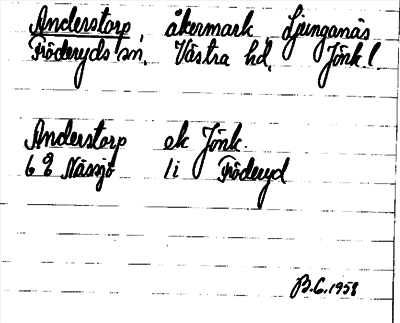 Anderstorp, åkermark, Ljunganäs
Fröderyds sn, Västra hd, Jönk l.
Anderstorp ek Jönk.
6g Nässjö 1i Fröderyd
B.G. 1958